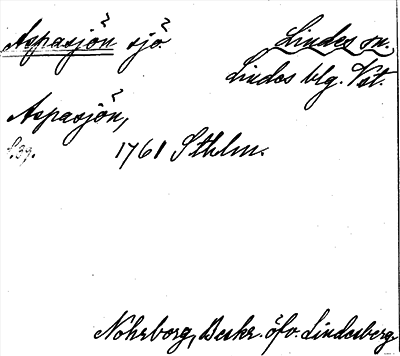 Aspasjön sjö. Lindes sn.
Lindes blg. Vst.
Aspasjön,
s. 39. 1761 Sthlm.
Nohrborg, Beskr. öfv. Lindesberg